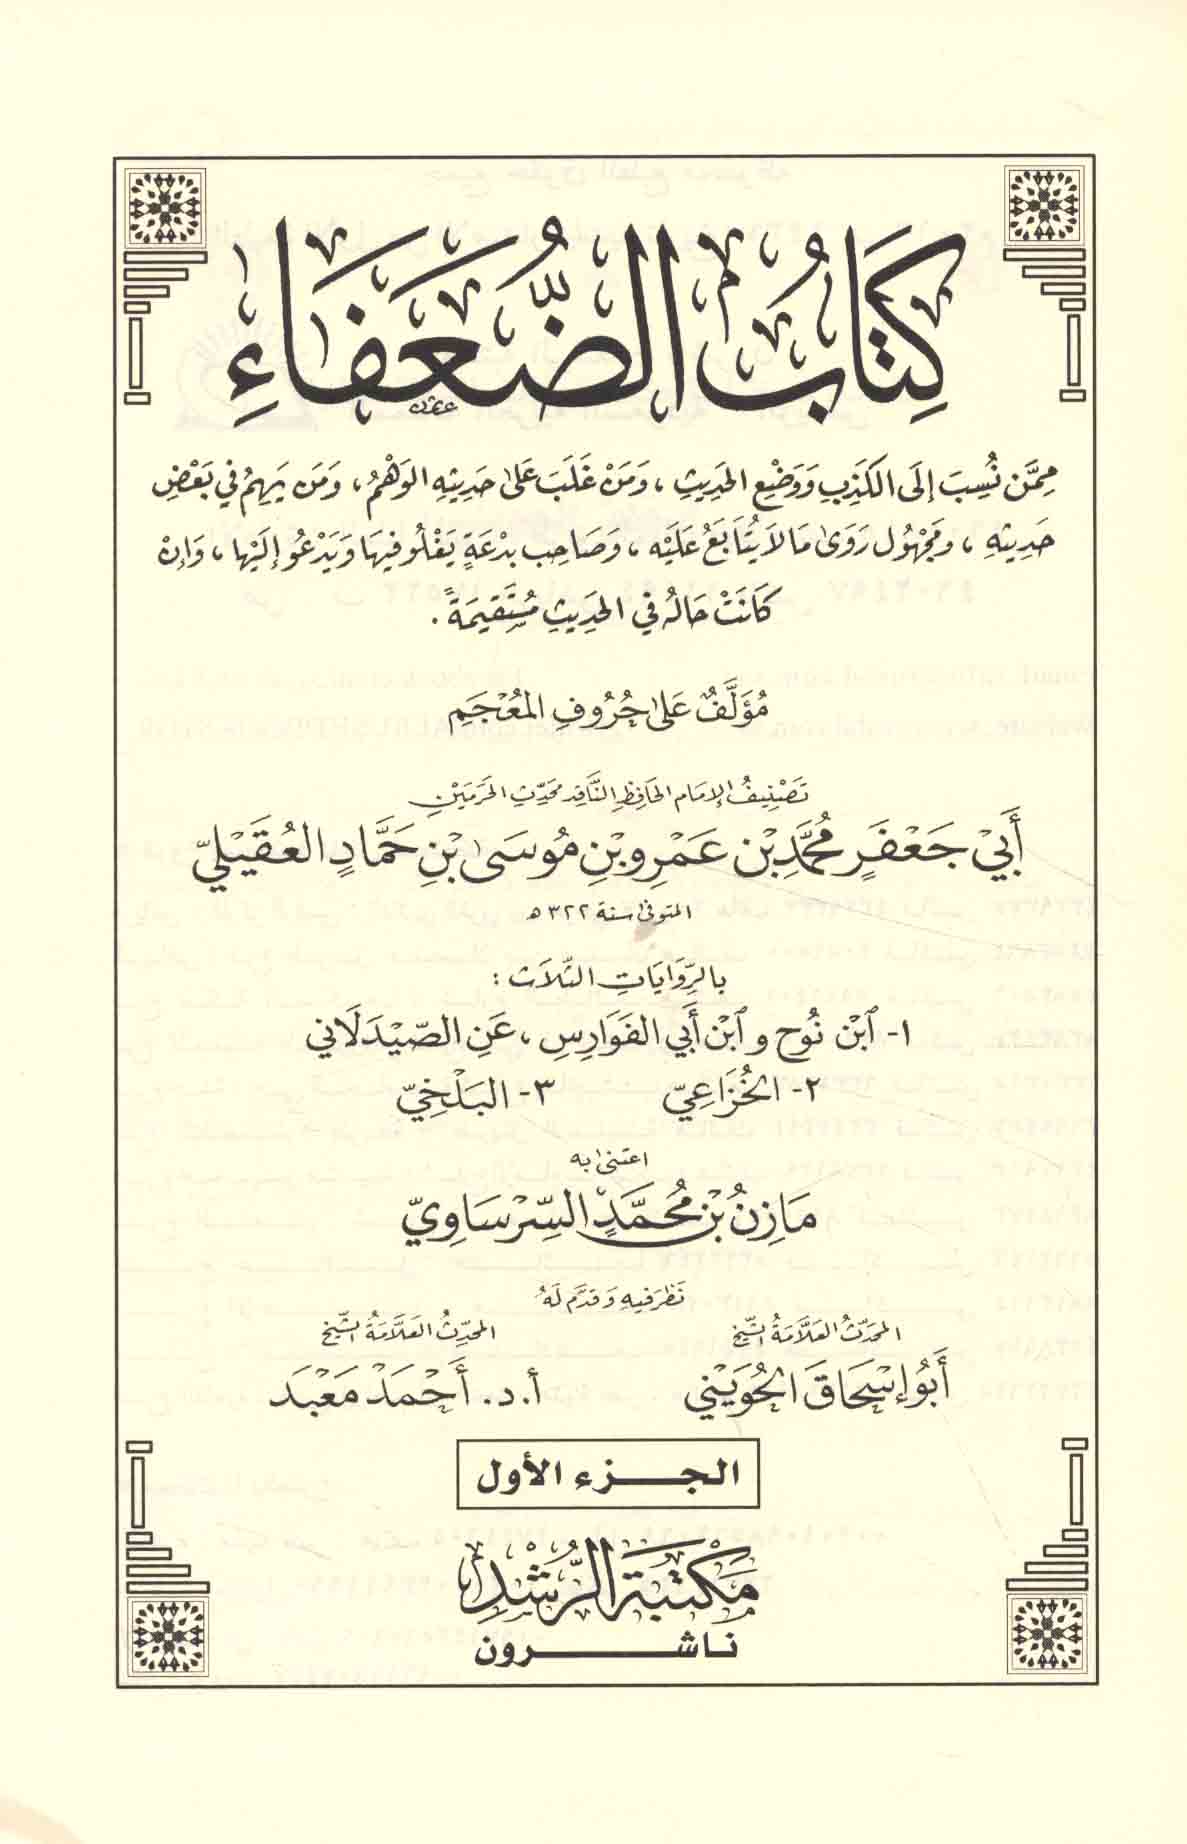 كِتَابُ الضُّعَفَاءِ
مِمَّن نُسِبَ إِلَى الكَذِبِ وَوَضْعِ الحَدِيثِ ، وَمَنْ غَلَبَ عَلَى حَدِيثِهِ الوَهْمُ ، وَمَن يَهِمُ فِي بَعْضِ
حَدِيثِهِ ، وَمَجْهُول رَوَى مَا لَا يُتَابَعُ عَلَيْهِ ، وَصَاحِب بِدْعَةٍ يَغْلُو فِيهَا وَيَدْعُو إِلَيْهَا ، وَإِنْ
كَانَتْ حَالُهُ فِي الحَدِيثِ مُسْتَقِيمَةً .
مُؤَلَّفٌ عَلَى حُرُوفِ المُعْجَمِ
تَصْنِيفُ الإِمَامِ الحَافِظِ النَّاقِدِ مُحَدِّثِ الحَرَمَيْنِ
أَبِيْ جَعْفَرٍ مُحَمَّدِ بْن عَمْرِو بْنِ مُوسَى بْنِ حَمَّادٍ العُقَيْلِيّ
المتوفى سنة ٣٢٢ هـ
بِالرِّوَايَاتِ الثَّلَاث :
١- ٱبْن نُوح وٱبْن أَبِي الفَوَارِسِ ، عَنِ الصَّيْدَلَانِي
٢- الخُزَاعِيّ ٣- البَلْخِيّ
اعتنى به
مَازِنُ بْن مُحَمَّدٍ السِّرْسَاوِيّ
نَظَرَ فِيهِ وَقَدَّمَ لَهُ
المحَدِّثُ العَلَّامَةُ الشَّيْخ المحَدِّثُ العَلَّامَةُ الشَّيْخ
أَبُو إِسْحَاقَ الحُوَيْنِي أ.د. أَحْمَد مَعْبَد
الجزء الأول
مَكْتَبَة الرُّشْدِ
ناشرون